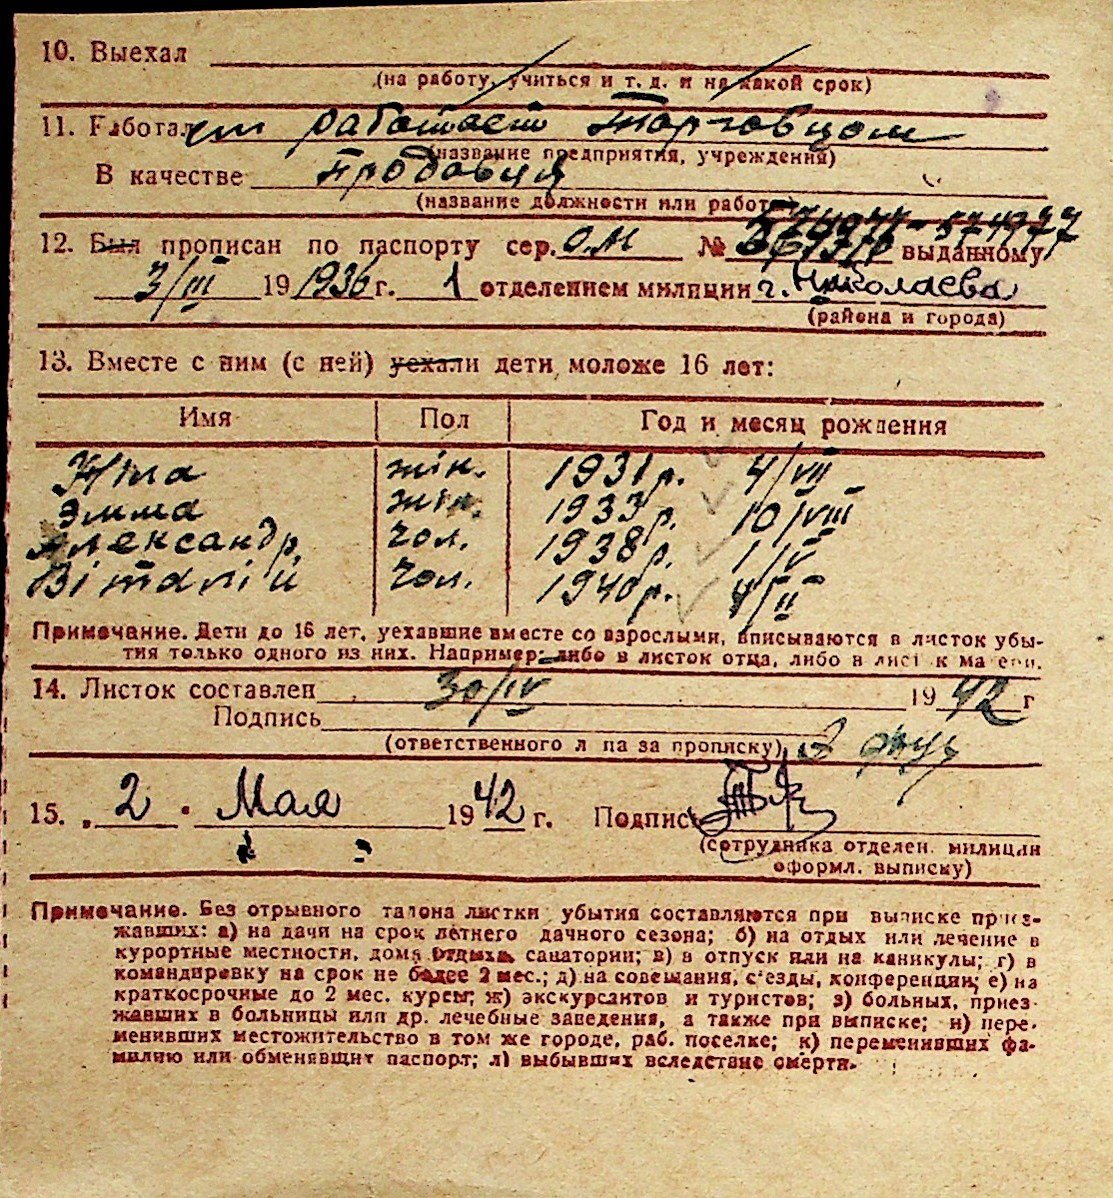 10. Выехал
(на работу, учиться и т. д. и на какой срок)
11. Работал работает торговцом
(название предприятия, учреждения)
В качестве продавця
(название должности или работы)
574977-574977
12. Был прописан по паспорту сер. ОМ № выданному
3/III 19 1936 г. 1 отделением милиции г. Николаева
(района и города)
13. Вместе с ним (с ней) уехали дети моложе 16 лет:
Имя Пол Год и месяц рождения
жін. 1931 р. 4/VII
Эмма жін. 1933 р. 10/VIII
Александр чол. 1938 р. 1/V
Віталій чол. 1940 р. 4/II
Примечание. Дети до 16 лет, уехавшие вместе со взрослыми, вписываются в листок убы-
тия только одного из них. Например: либо в листок отца, либо в листок матери.
14. Листок составлен 30/IV 1942 г
Подпись
(ответственного лица за прописку)
15. „2" Мая 1942 г. Подпись
(сотрудника отделен. милиции
оформл. выписку)
Примечание. Без отрывного талона листки убытия составляются при выписке приез-
жавших: а) на дачи на срок летнего дачного сезона; б) на отдых или лечение в
курортные местности, дома отдыха, санатории; в) в отпуск или на каникулы; г) в
командировку на срок не более 2 мес.; д) на совещания, с'езды, конференции; е) на
краткосрочные до 2 мес. курсы; ж) экскурсантов и туристов; з) больных, приез-
жавших в больницы или др. лечебные заведения, а также при выписке; и) пере-
менивших местожительство в том же городе, раб. поселке; к) переменивших фа-
милию или обменявших паспорт; л) выбывших вследствие смерти.